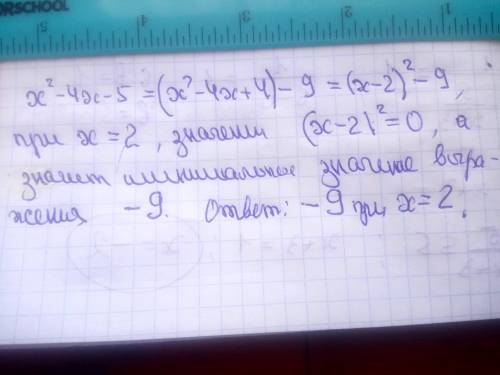 ORSCHOOL
5 4 3 2 1
x²-4x-5 = (x²-4x+4) - 9 = (x-2)² - 9,
при x = 2, значении (x-2)² = 0, а
значит минимальное значение выра-
жения -9. Ответ: -9 при x = 2.